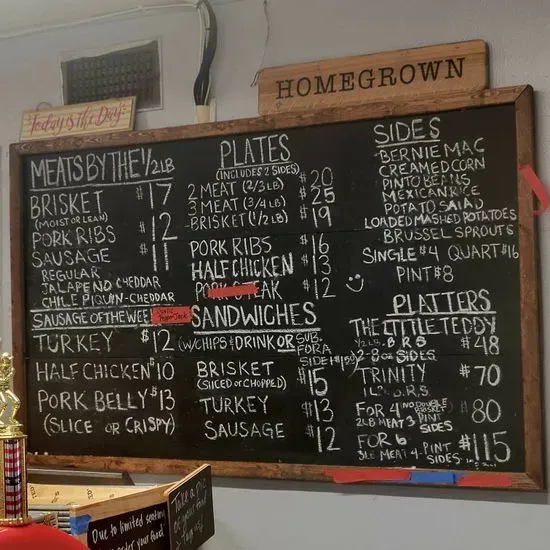 HOMEGROWN
Today is the Day
MEATS BY THE 1/2 LB
BRISKET $17
(MOIST OR LEAN)
PORK RIBS $12
SAUSAGE $11
REGULAR
JALAPENO CHEDDAR
CHILE PIQUIN-CHEDDAR
SAUSAGE OF THE WEE
TURKEY $12
HALF CHICKEN $10
PORK BELLY $13
(SLICE OR CRISPY)
PLATES
(INCLUDES 2 SIDES)
2 MEAT (2/3 LB) $20
3 MEAT (3/4 LB) $25
BRISKET (1/2 LB) $19
PORK RIBS $16
HALF CHICKEN $13
PORK STEAK $12
SANDWICHES
(W/CHIPS & DRINK OR SUB.
FOR A
SIDE
BRISKET $15
(SLICED OR CHOPPED)
TURKEY $13
SAUSAGE $12
SIDES
BERNIE MAC
CREAMED CORN
PINTO BEANS
MEXICAN RICE
POTATO SALAD
LOADED MASHED POTATOES
BRUSSEL SPROUTS
SINGLE $4 QUART $16
PINT $8
PLATTERS
THE LITTLE TEDDY $48
1/2 LB. B R S
2-8 oz SIDES
TRINITY $70
1 LB. B.R.S.
FOR 4 (NO DOUBLE BRISKET) $80
2LB MEAT 3 PINT
SIDES
FOR 6 $115
3LB MEAT 4-PINT
SIDES
Due to limited seating
order your food
Take a Pic
of your food
& Tag us